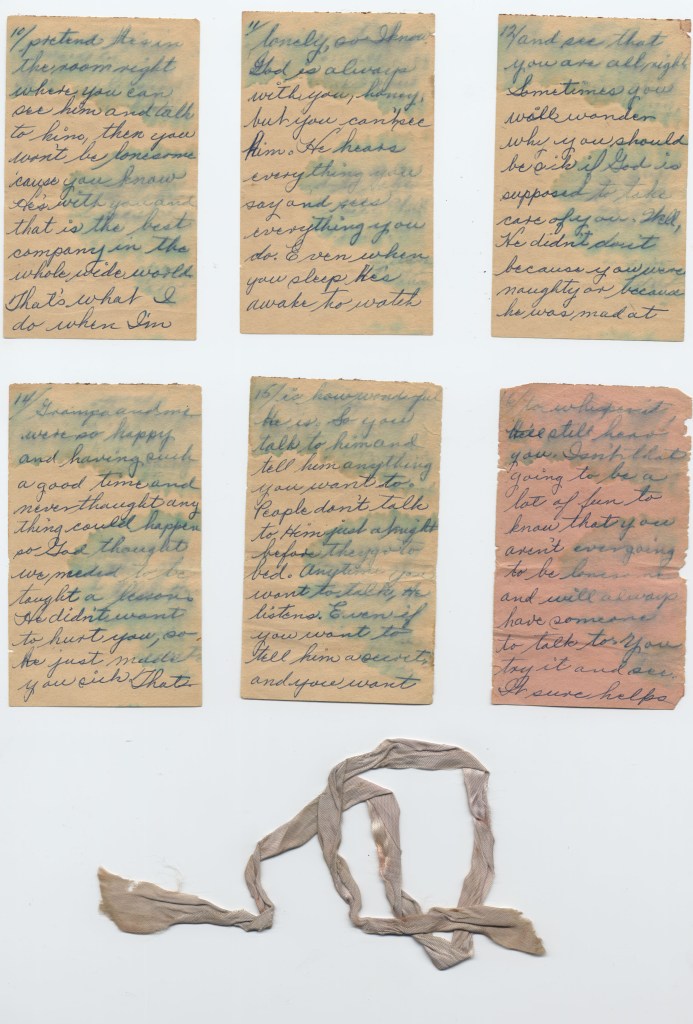 10/pretend He's in
the room right
where you can
see him and talk
to him, then you
won't be lonesome
'cause you know
He's with you and
that is the best
company in the
whole wide world
That's what I
do when I'm
11/lonely, so I know
God is always
with you, honey,
but you can't see
Him. He hears
everything you
say and sees
everything you
do. Even when
you sleep He's
awake to watch
12/and see that
you are all right
Sometimes you
will wonder
why you should
be sick if God is
supposed to take
care of you. Well,
He didn't do it
because you were
naughty or because
he was mad at
14/Grampa and me
were so happy
and having such
a good time and
never thought any
thing could happen
so God thought
we needed to be
taught a lesson.
He didn't want
to hurt you, so
He just made
you sick. That
15/is how wonderful
He is. So you
talk to him and
tell him anything
you want to.
People don't talk
to Him just at night
before they go to
bed. Anytime you
want to talk, He
listens. Even if
you want to
tell him a secret
and you want
16/to whisper it
He'll still hear
you. Isn't that
going to be a
lot of fun to
know that you
aren't ever going
to be
and will always
have someone
to talk to. You
try it and see.
It sure helps